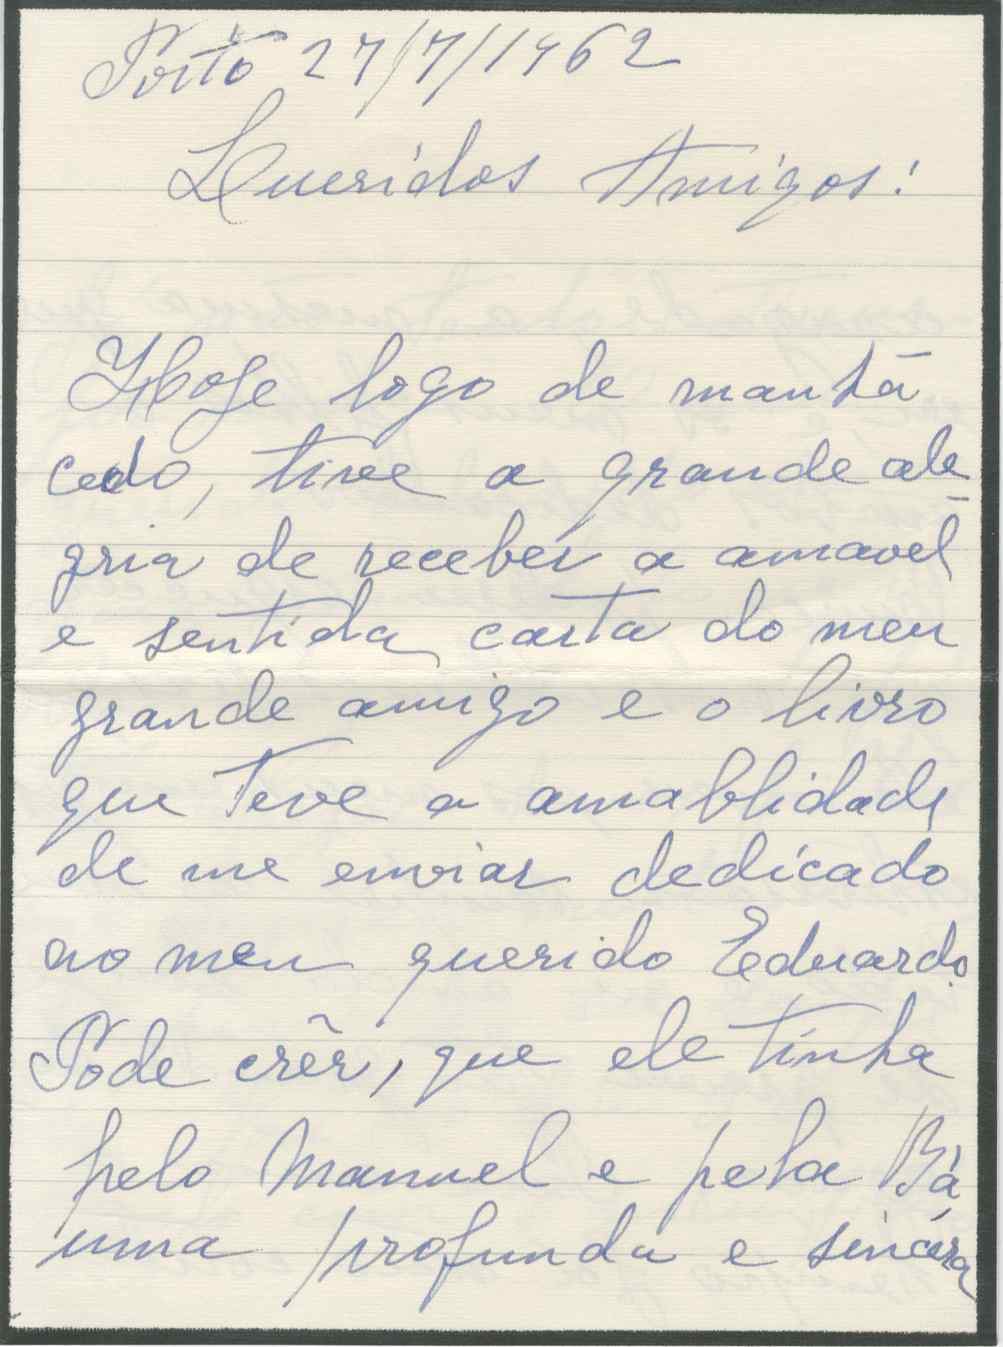 Porto 27/7/1962
Queridos Amigos:
Hoje logo de manhã
cedo, tive a grande ale
gria de receber a amavel
e sentida carta do meu
grande amigo e o livro
que teve a amablidade
de me enviar dedicado
ao meu querido Eduardo.
Pode crêr, que ele tinha
pelo Manuel e pela Bá
uma profunda e sincera